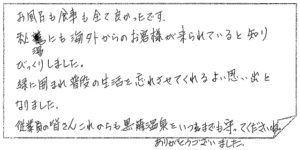 お風呂も食事も全て良かったです。
秘湯にも海外からのお客様が来られていると知り
びっくりしました。
緑に囲まれ普段の生活を忘れさせてくれるよい思い出と
なりました。
従業員の皆さんこれからも黒薙温泉をいつまでも守ってくださいね。
ありがとうございました。